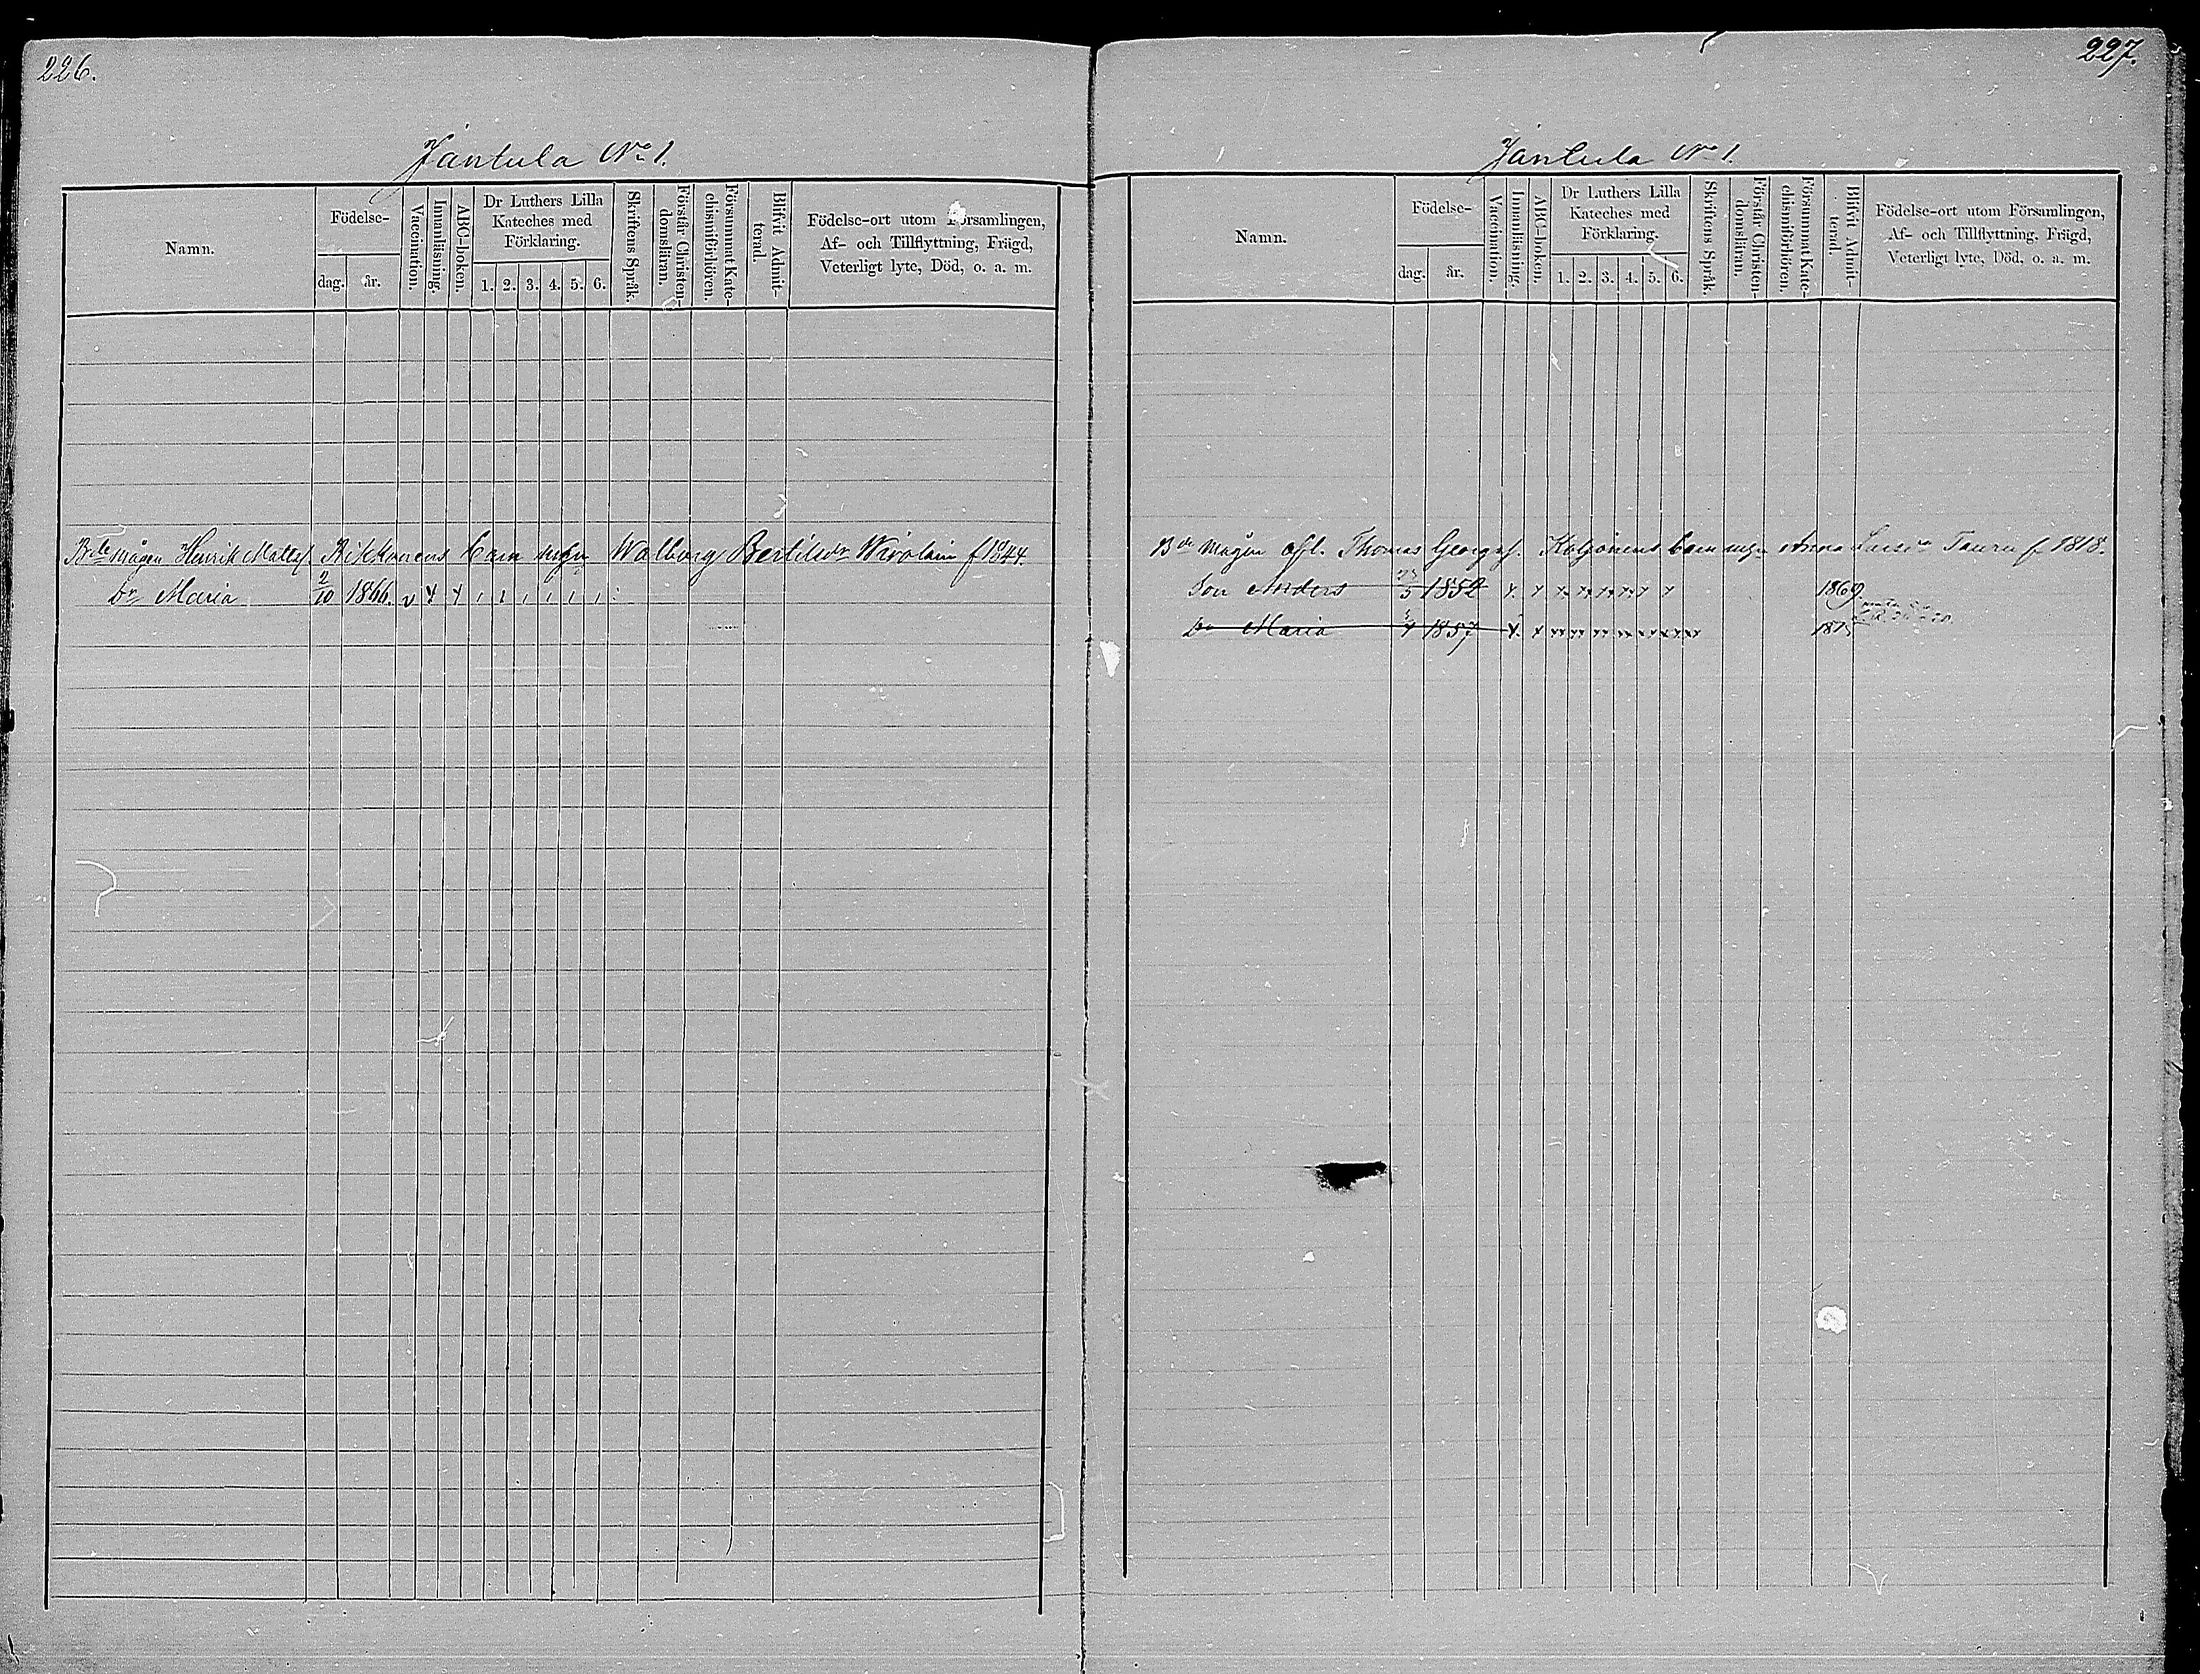 226.
Jäntula No 1.
Namn.
Födelse-
dag.
år.
Vaccination.
Innanläsning.
ABC-boken.
Dr Luthers Lilla
Kateches med
Förklaring.
1. 2. 3. 4. 5. 6.
Skriftens Språk.
Förstår Christen-
domsläran.
Försummat Kate-
chismiförhören.
Blifvit Admit-
terad.
Födelse-ort utom Församlingen,
Af- och Tillflyttning, Frägd,
Veterligt lyte, Död, o. a. m.
Bde mågen Henrik Matts. Rikkonens barn m Walborg Bertilsdr Wirolain f 1844.
Dr Maria 2/10 1866.
227.
Jäntula No 1.
Namn.
Födelse-
dag.
år.
Vaccination.
Innanläsning.
ABC-boken.
Dr Luthers Lilla
Kateches med
Förklaring.
1. 2. 3. 4. 5. 6.
Skriftens Språk.
Förstår Christen-
domsläran.
Försummat Kate-
chismiförhören.
Blifvit Admit-
terad.
Födelse-ort utom Församlingen,
Af- och Tillflyttning, Frägd,
Veterligt lyte, Död, o. a. m.
Bde mågen afl. Thomas Georgs. Koljonens barn Anna Tauru f 1818.
Son Anders 1852 1869.
Dr Maria 1857